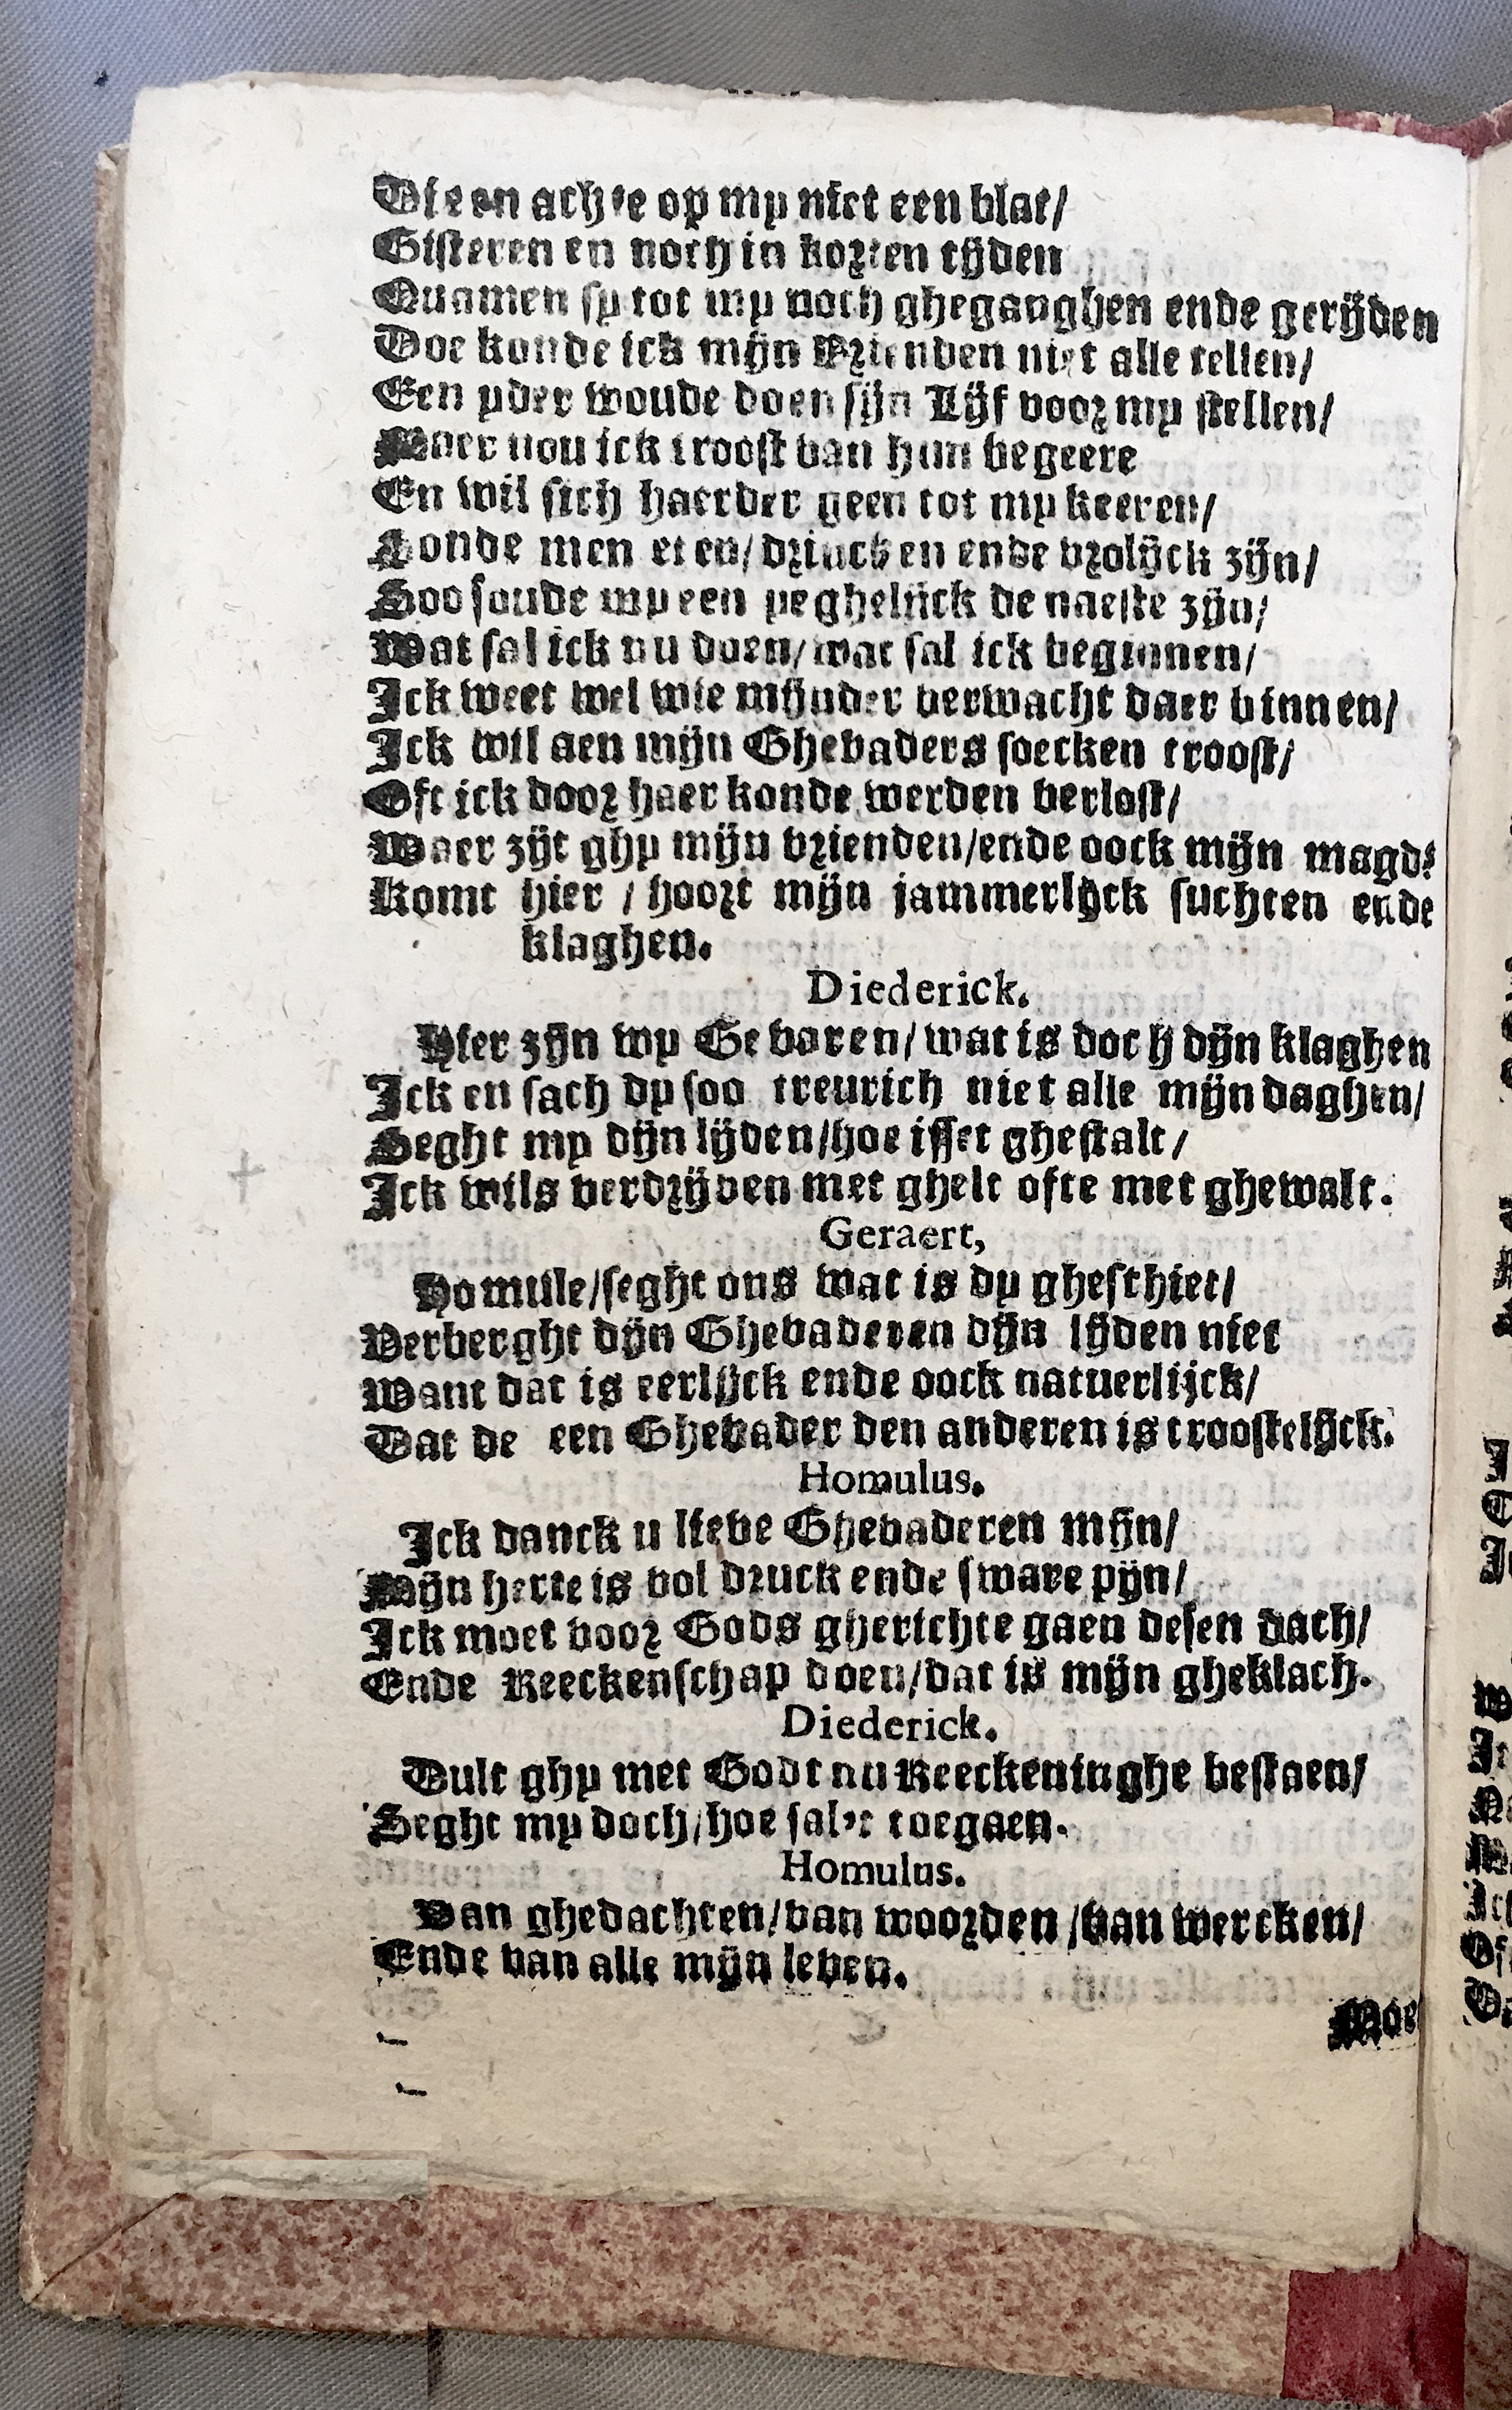 Die en achte op my niet een blat/
Gisteren en noch in korten tijden
Quamen sy tot my noch ghegangen ende gerijden
Doe konde ick mijn Vrienden niet alle tellen/
Een yder woude doen sijn Lijf voor my stellen/
Maer nou ick troost van hun begeere
En wil sich haerder geen tot my keeren/
Konde men eten/drincken ende vrolijck zijn/
Soo soude my een yeghelijck de naeste zijn/
Wat sal ick nu doen/wat sal ick beginnen/
Ick weet wel wie mijnder verwacht daer binnen/
Ick wil aen mijn Ghevaders soecken troost/
Oft ick door haer konde werden verlost/
Waer zijt ghy mijn vrienden/ende oock mijn magd:
Komt hier / hoort mijn jammerlijck suchten ende
klaghen.
Diederick.
Hier zijn wy Gevaren/wat is doch dijn klaghen
Ick en sach dy soo treurich niet alle mijn daghen/
Seght my dijn lijden/hoe isset ghestalt/
Ick wils verdrijven met ghelt ofte met ghewalt.
Geraert,
Homule/seght ons wat is dy gheschiet/
Verberght dijn Ghevaderen dijn lijden niet
Want dat is eerlijck ende oock natuerlijck/
Dat de een Ghevader den anderen is troostelijck.
Homulus.
Ick danck u lieve Ghevaderen mijn/
Mijn herte is vol druck ende sware pijn/
Ick moet voor Gods gherichte gaen desen dach/
Ende Reeckenschap doen/dat is mijn gheklach.
Diederick.
Dult ghy met Godt nu Reeckeninghe bestaen/
Seght my doch/hoe sal't toegaen.
Homulus.
Van ghedachten/van woorden/van wercken/
Ende van alle mijn leven.
Moe